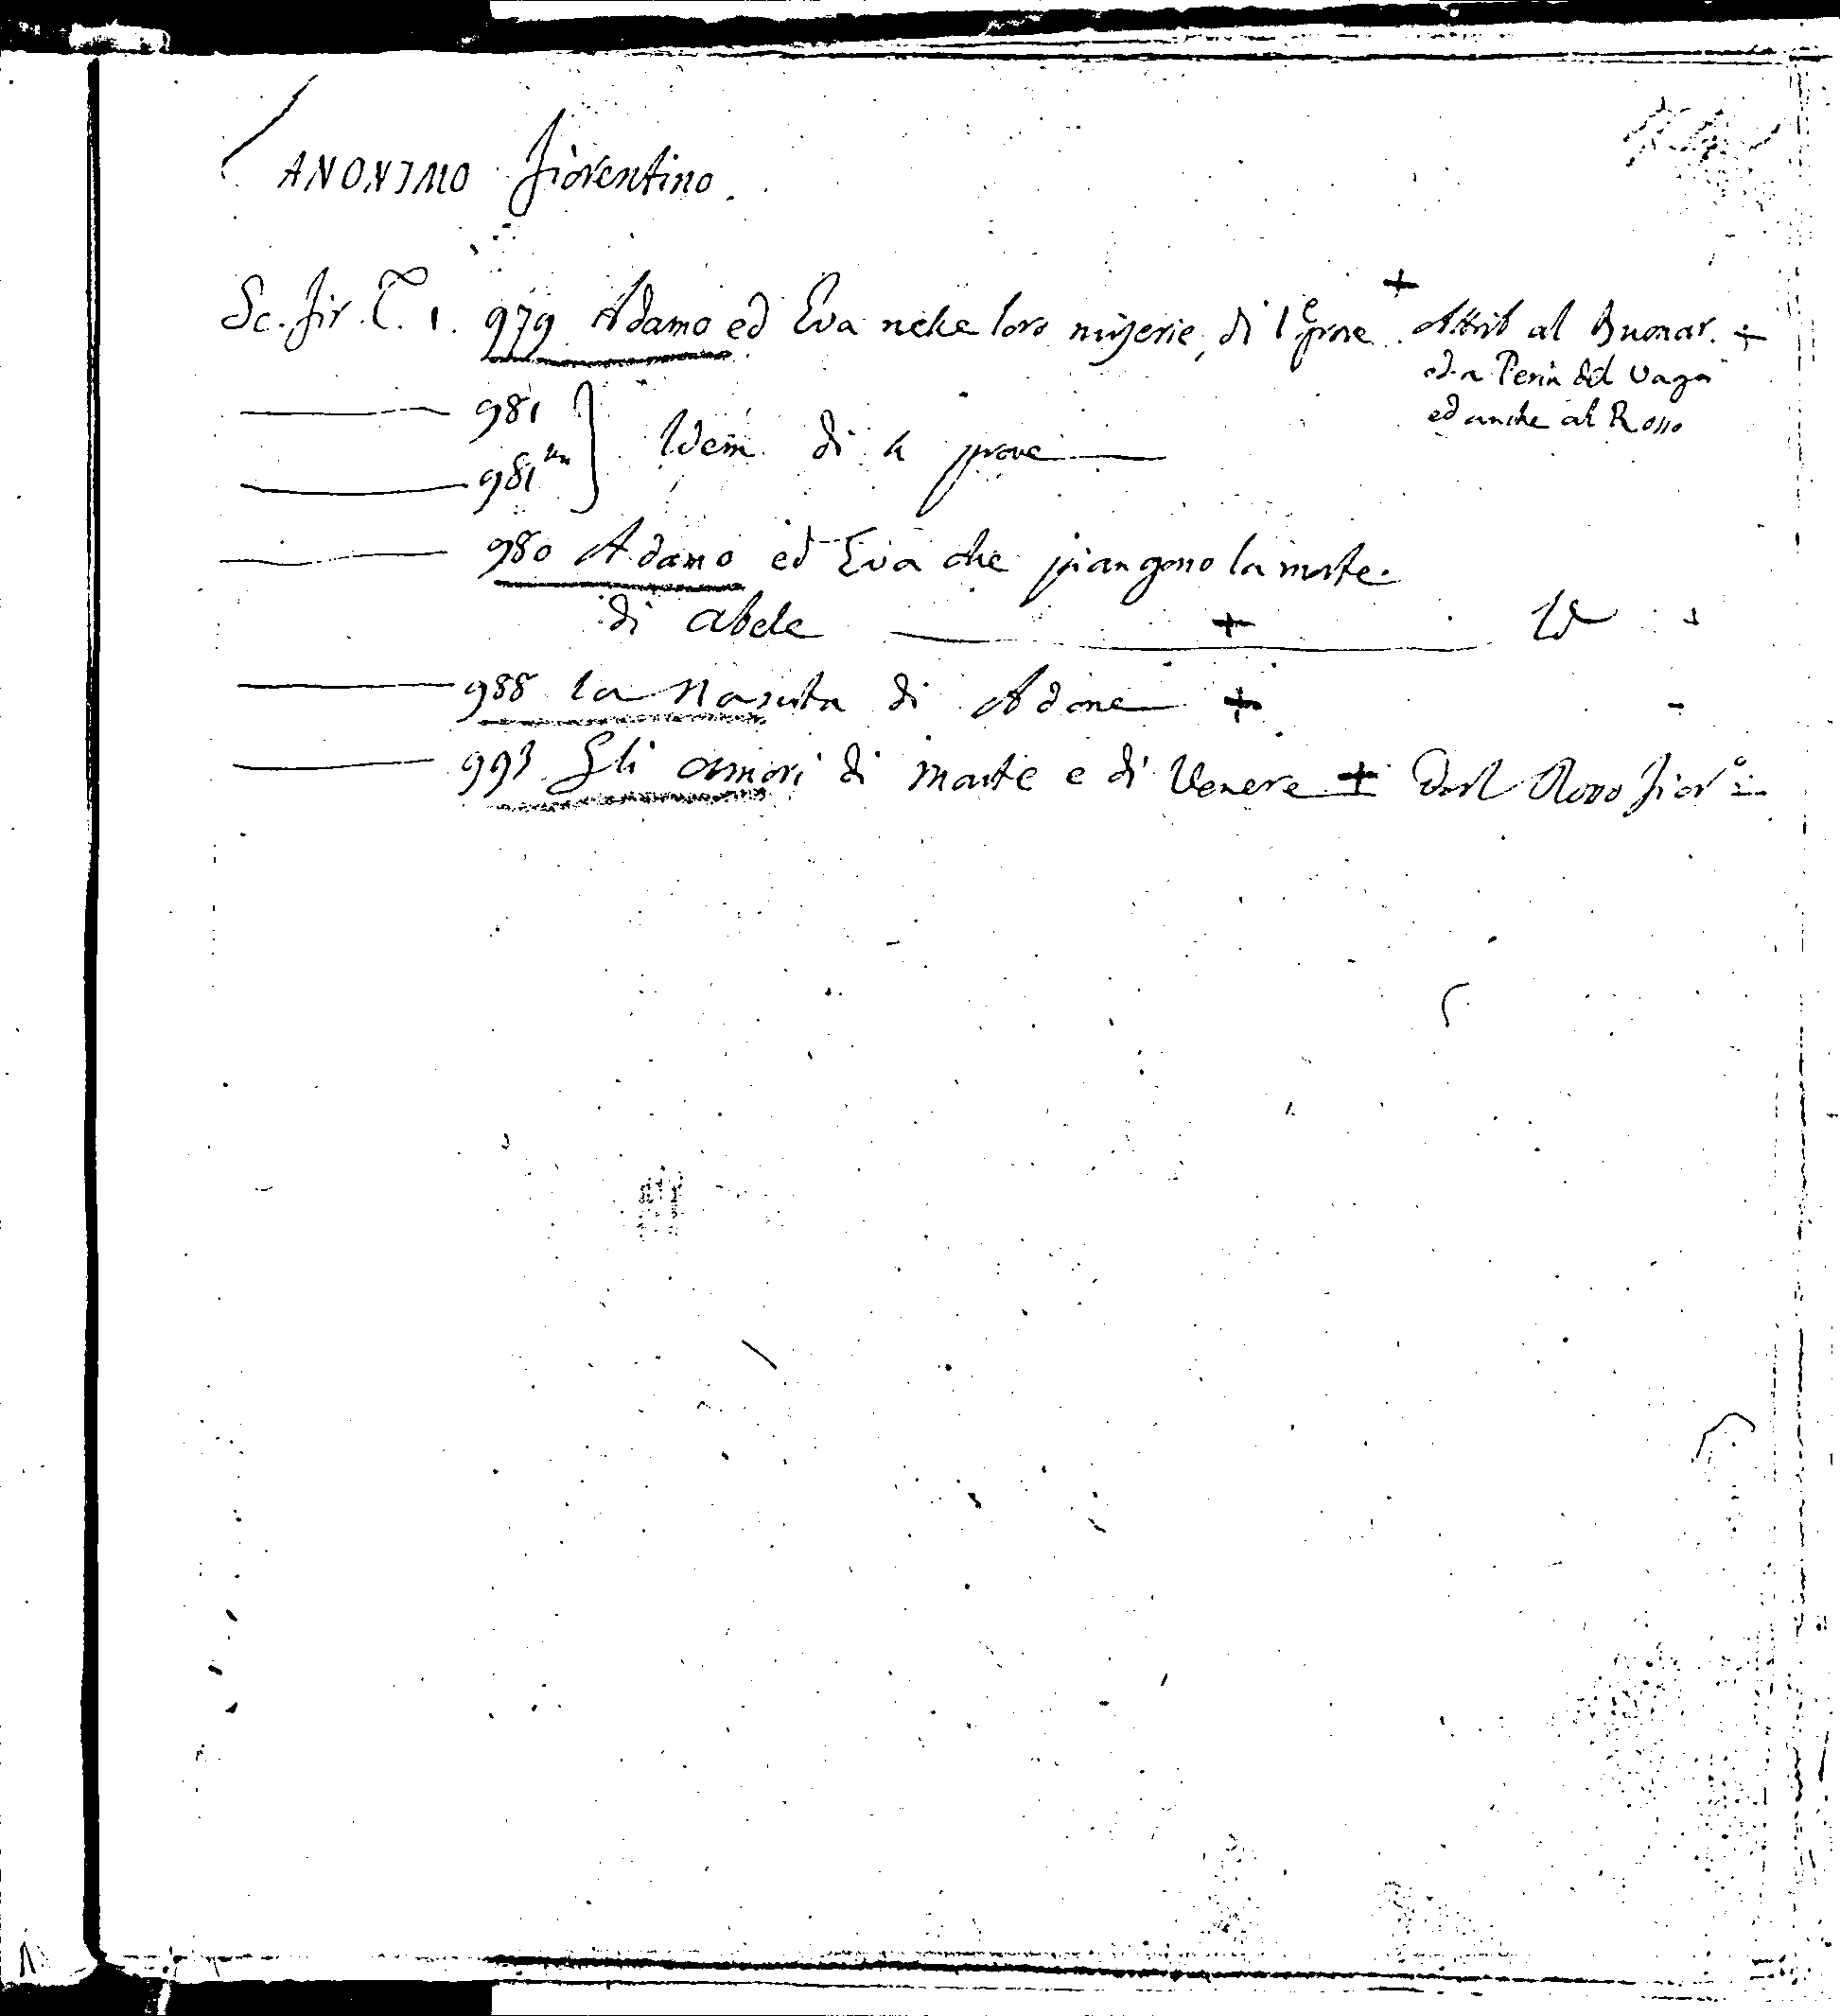 ANONIMO fiorentino.
Sc. fir. T. 1. 979 Adamo ed Eva nelle loro miserie, di 1e prove + Attrib al Buonar. +
ed a Perin del Vaga
ed anche al Rosso
981
981 } Idem di 4 prove
980 Adamo ed Eva che piangono la morte
di Abele + Id
988 la Nascita di Adone +
993 Gli amori di Marte e di Venere + Dal Rosso fiorº